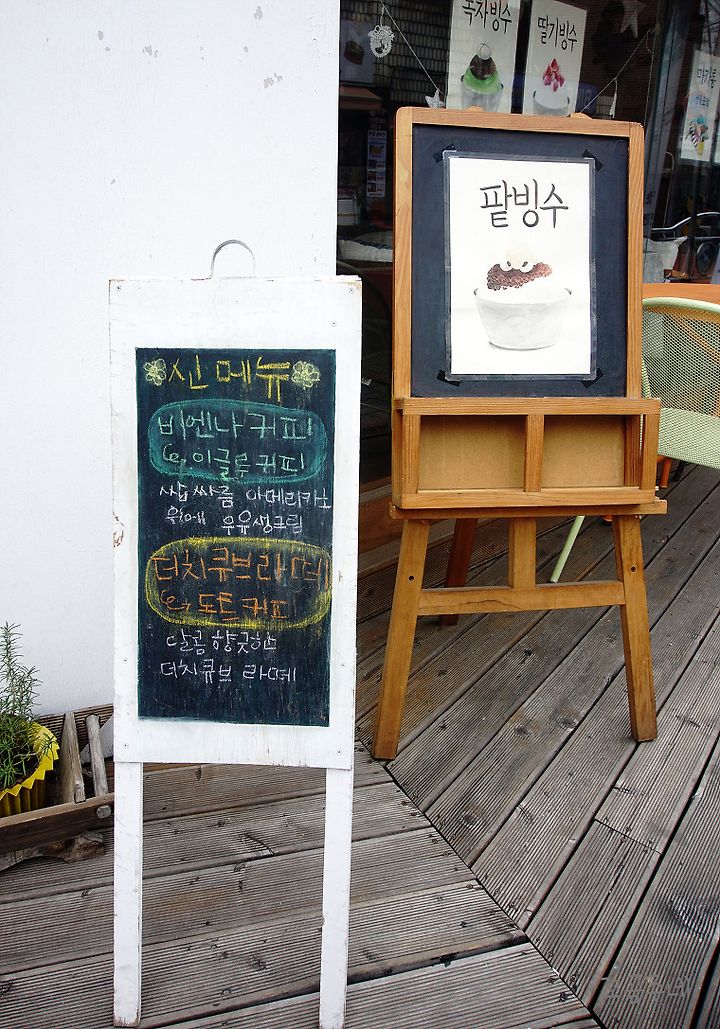 신메뉴
비엔나 커피
& 이글루 커피
쌉싸름 아메리카노
위에 우유생크림
더치큐브라떼
& 도트 커피
달콤 향긋한
더치큐브 라떼
팥빙수
녹차빙수
딸기빙수
마카롱